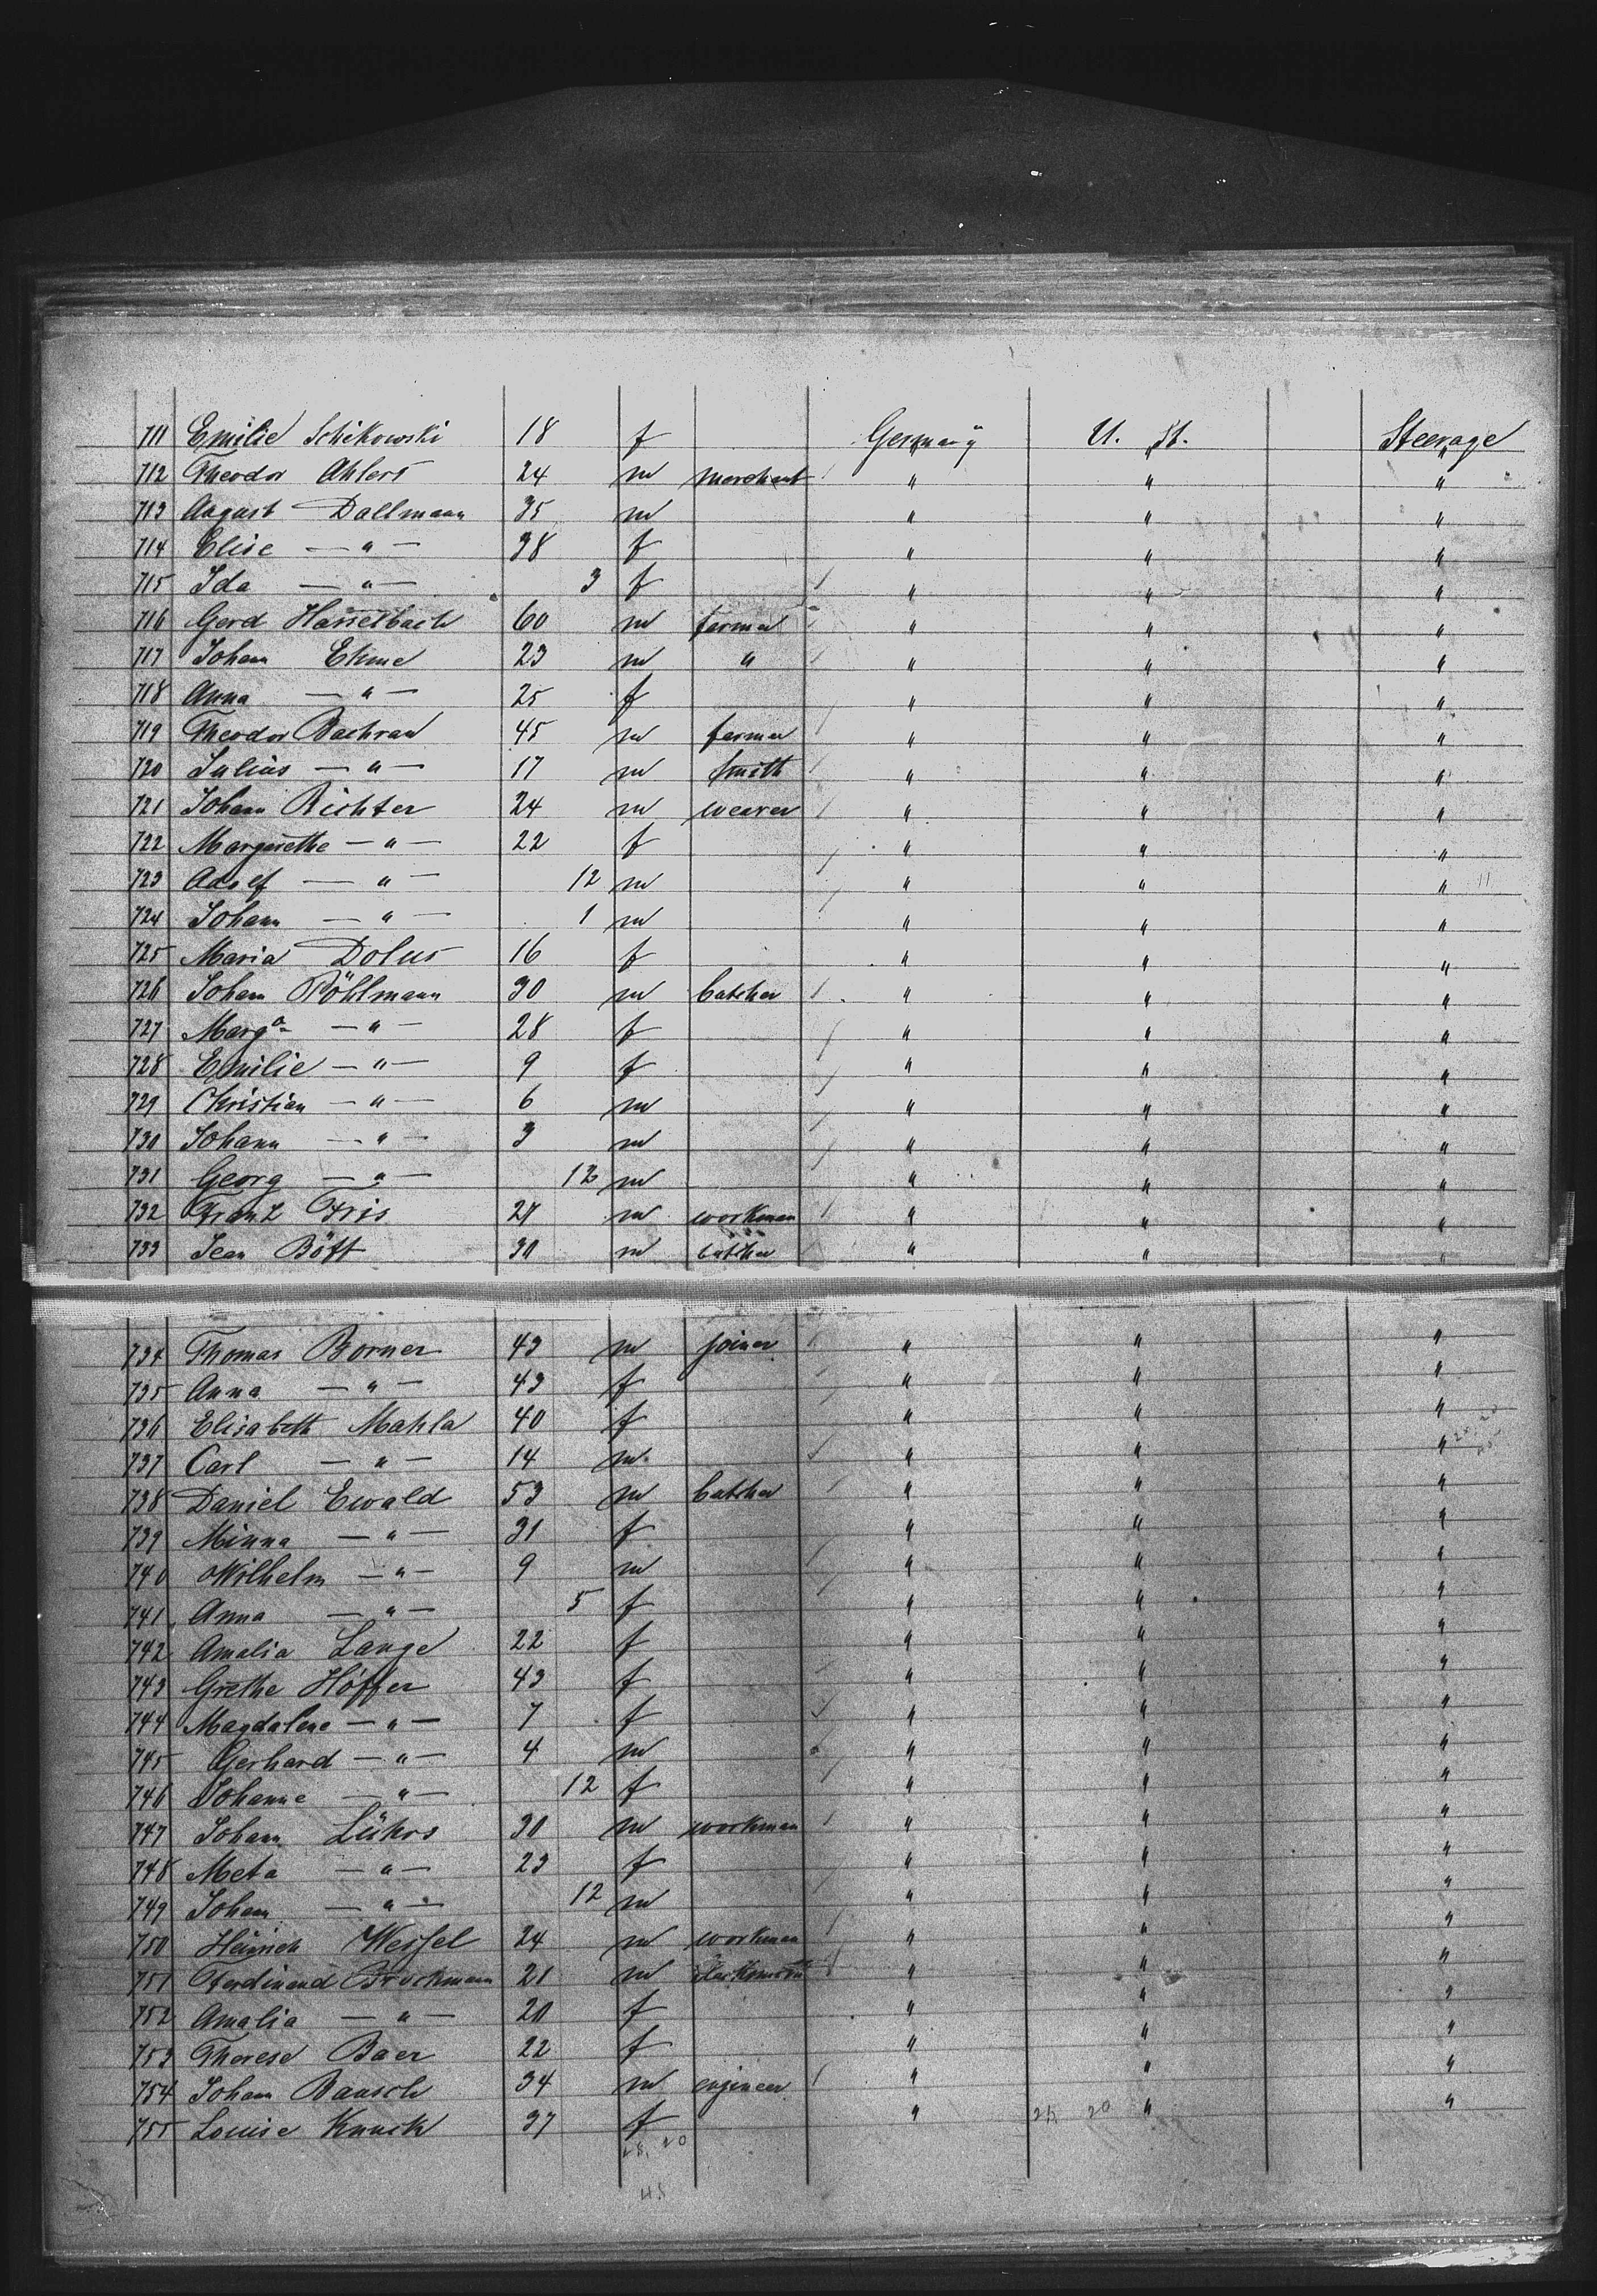 711 Emilie Schikowski 18 f Germany U. St. Steerage
712 Theodor Ahlers 24 m merchant " " "
713 August Dallmann 35 m " " "
714 Elise — " — 38 f " " "
715 Ida — " — 3 f " " "
716 Gerd Hasselbach 60 m farmer " " "
717 Johann Ehme 23 m " " " "
718 Anna — " — 25 f " " "
719 Theodor Bachran 45 m farmer " " "
720 Julius — " — 17 m smith " " "
721 Johann Richter 24 m weaver " " "
722 Margarethe — " — 22 f " " "
723 Adolf — " — 12 m " " "
724 Johann — " — 1 m " " "
725 Maria Dolus 16 f " " "
726 Johann Pöhlmann 30 m butcher " " "
727 Marga — " — 28 f " " "
728 Emilie — " — 9 f " " "
729 Christian — " — 6 m " " "
730 Johann — " — 3 m " " "
731 Georg — " — 12 m " " "
732 Franz Fris 27 m workman " " "
733 Jean Bött 30 m butcher " " "
734 Thomas Borner 43 m joiner " " "
735 Anna — " — 43 f " " "
736 Elisabeth Mahla 40 f " " "
737 Carl — " — 14 m " " "
738 Daniel Ewald 53 m butcher " " "
739 Minna — " — 31 f " " "
740 Wilhelm — " — 9 m " " "
741 Anna — " — 5 f " " "
742 Amalia Lange 22 f " " "
743 Grethe Höffer 43 f " " "
744 Magdalene — " — 7 f " " "
745 Gerhard — " — 4 m " " "
746 Johanne — " — 12 f " " "
747 Johann Lührs 30 m workman " " "
748 Meta — " — 23 f " " "
749 Johann — " — 12 m " " "
750 Heinrich Wessel 24 m workman " " "
751 Ferdinand Brockmann 21 m blacksmith " " "
752 Amalia — " — 20 f " " "
753 Therese Baer 22 f " " "
754 Johann Bausch 34 m engineer " " "
755 Louise Knuck 37 f " 25 20 " "
25, 20
45